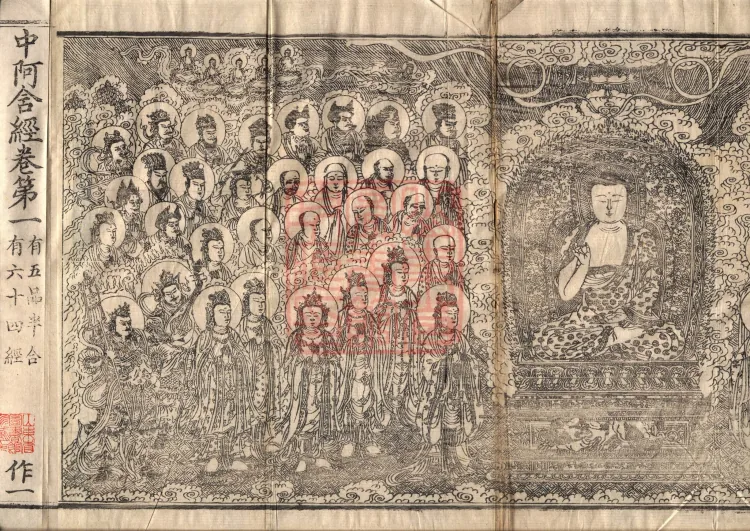 中阿含經卷第一
有五品半合
有六十四經
作一